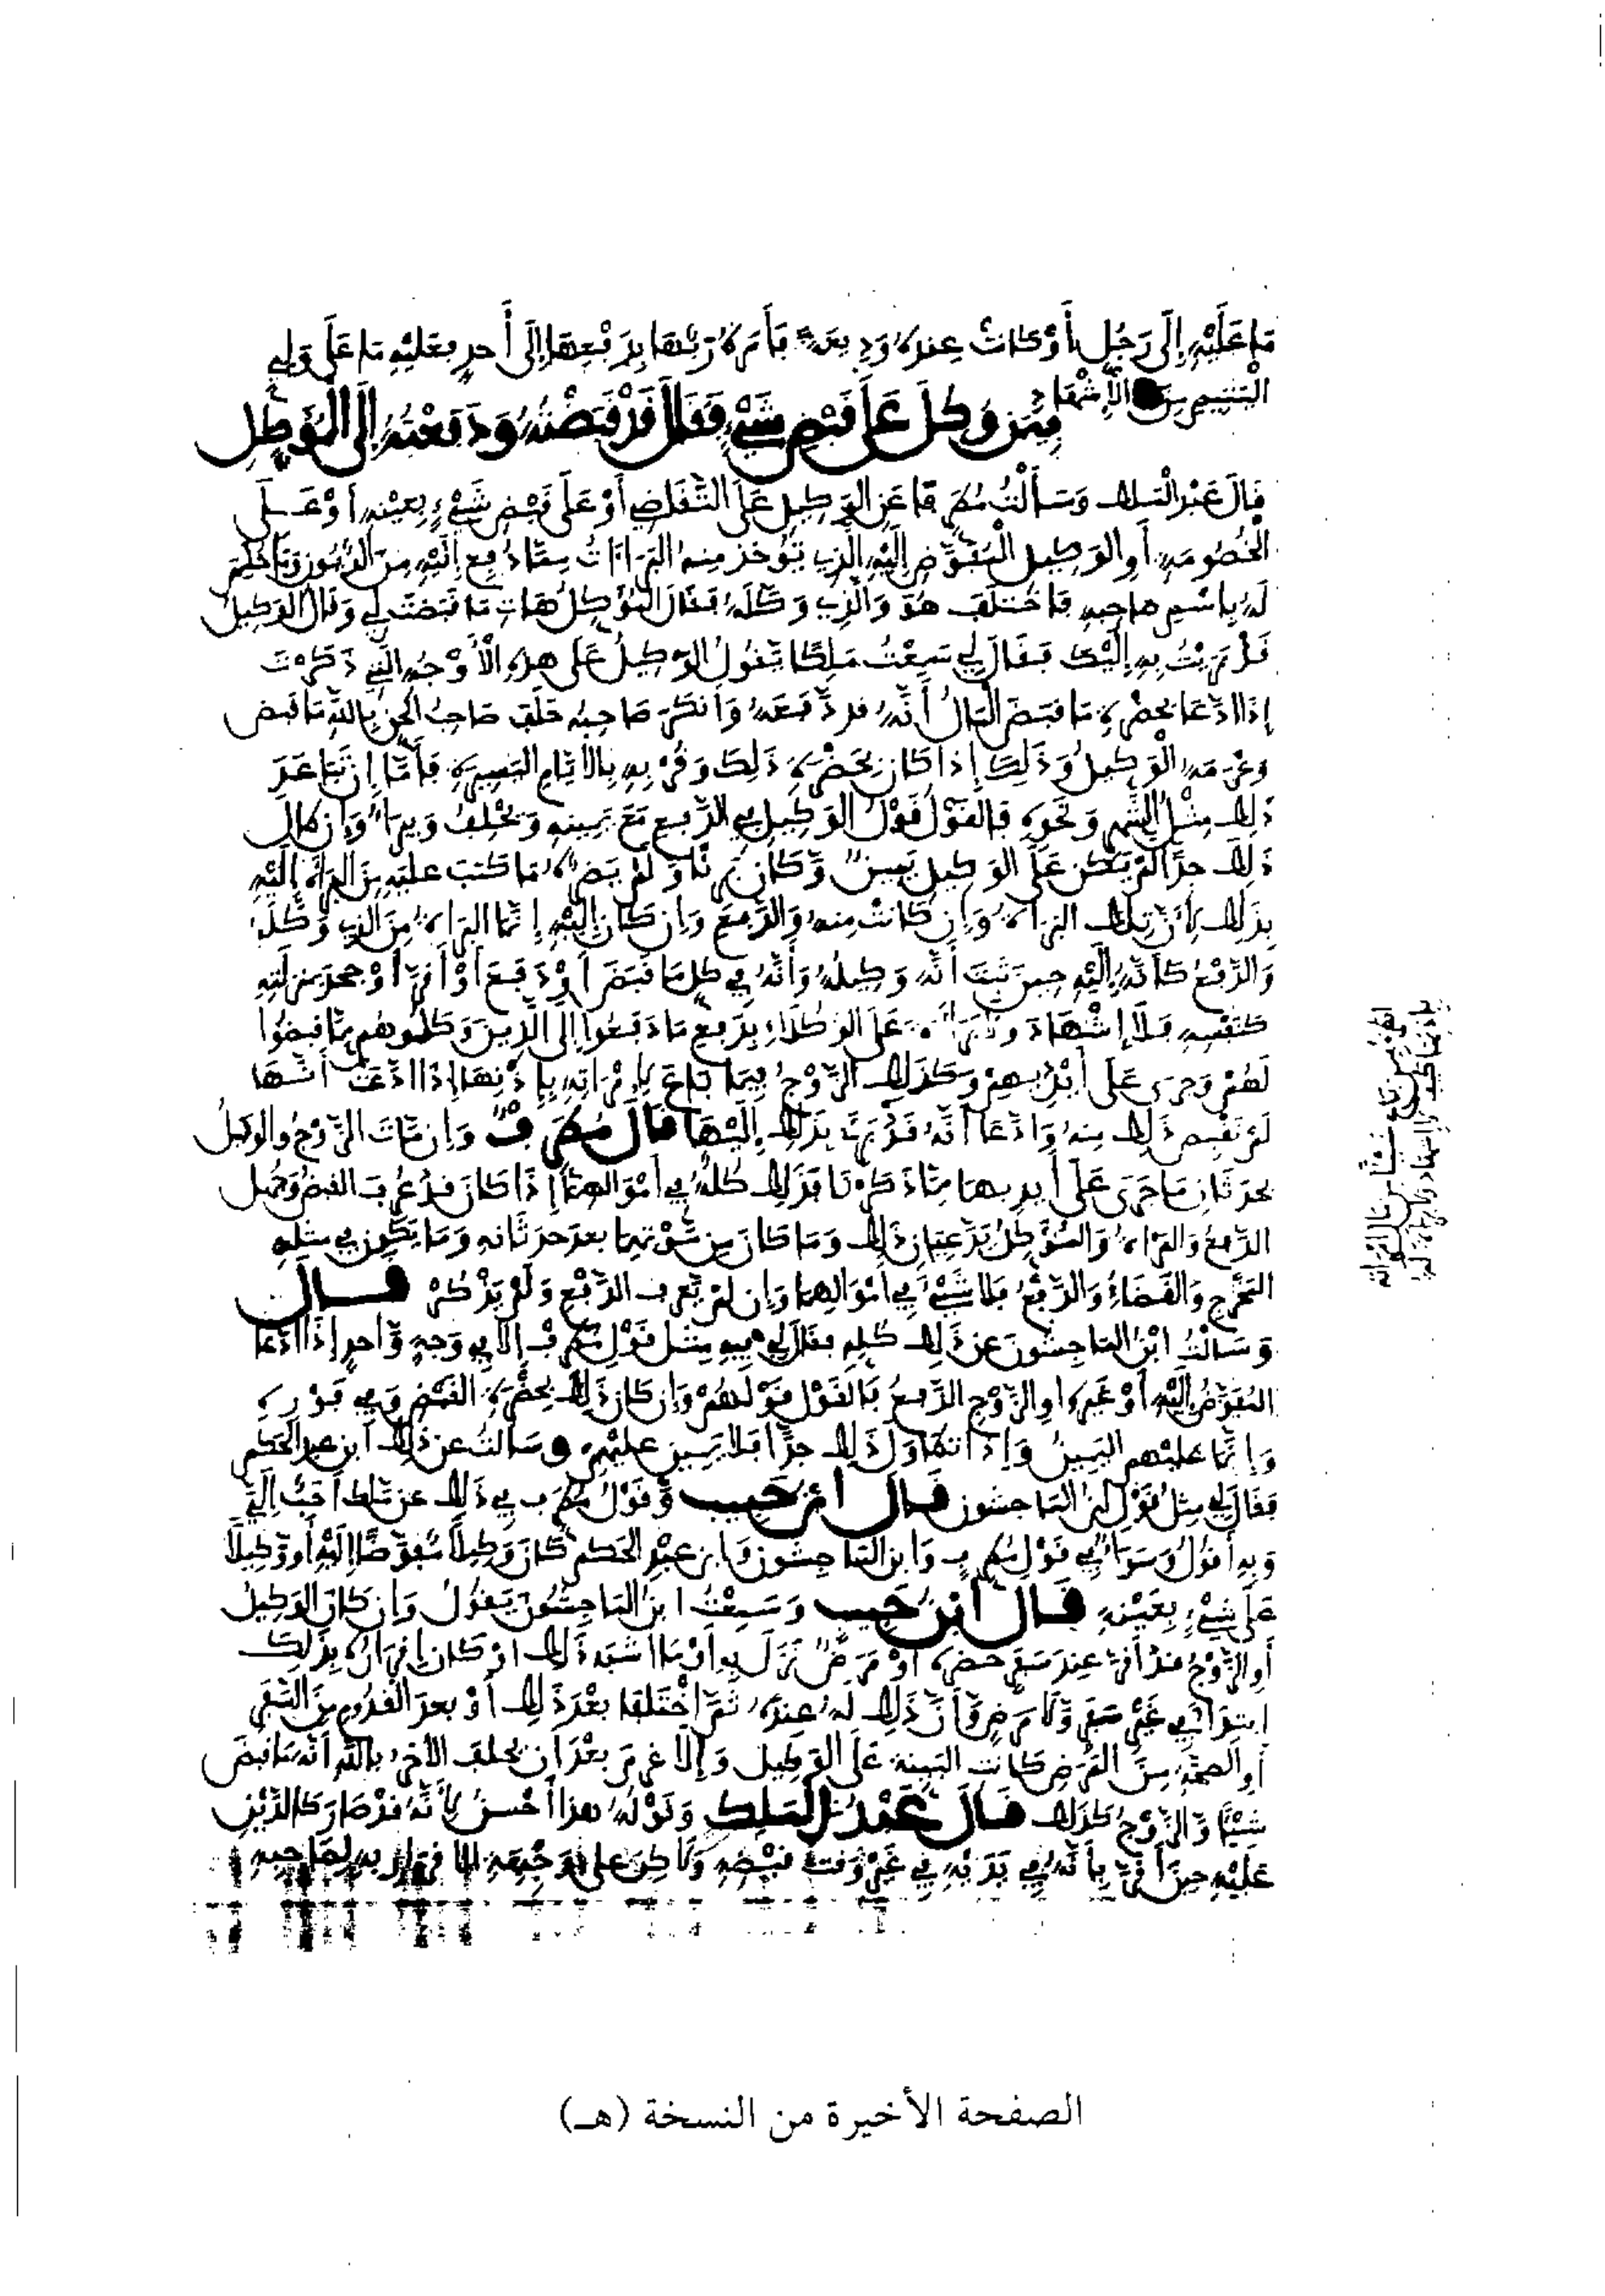 ما عليه إلى رجل أو كانت عنده وديعة فأمره ربها بدفعها إلى أحد فعليه ما على ولي
اليتيم من الإشهاد
فيمن وكل على قبض شيء فقال قد قبضته ودفعته إلى الموكل
قال عبد الملك وسألت مطرفا عن الوكيل على التقاضي أو على قبض شيء بعينه أو على
الخصومة أو الوكيل المفوض إليه الذي تؤخذ منه البراءات مما دفع إليه من الديون
له باسم صاحبه فاختلف هو والذي وكله فقال الموكل هات ما قبضت لي وقال الوكيل
قد برئت به إليك فقال لي سمعت ملكا يقول الوكيل على هذه الأوجه التي ذكرت
إذا ادعا بحضرة ما قبض المال أنه قد دفعه وأنكر صاحبه حلف صاحب الحق بالله ما قبض
وغرمه الوكيل وذلك إذا كان بحضرة ذلك وقربه بالأيام اليسيرة فأما إن تباعد
ذلك مثل الشهر ونحوه فالقول قول الوكيل في الدفع مع يمينه ويحلف ويبرأ وإن كان
ذلك جدا لم يكن على الوكيل يمين وكان بريئا ولم يضره ما كتب عليه من البراءة إليه
بذلك لأن تلك البراءة وإن كانت منه والدفع وإن كان إليه إنما البراءة من الذي وكله
والدفع كأنه إليه حين ثبت أنه وكيله وأنه في كل ما قبض أو دفع أو أقر أو جحد بمنزلته
كنفسه فلا إشهاد ولا براءة على الوكلاء بدفع ما دفعوا إلى الذين وكلوهم مما قبضوا
لهم وجرى على أيديهم وكذلك الزوج فيما باع لامرأته بإذنها إذا ادعت أنها
لم تقبض ذلك منه وادعا أنه قد برئ بذلك إليها قال مطرف وإن مات الزوج والوكيل
بحدثان ما جرى على أيديهما مما ذكرنا فذلك كله في أموالهما إذا كان قد عرف القبض وجهل
الدفع والمرأة والموكل يدعيان ذلك وما كان من موتهما بعد حدثانه وما يكون في مثله
المخرج والقضاء والدفع فلا شيء في أموالهما وإن لم يعرف الدفع ولم يذكر قال
وسألت ابن الماجشون عن ذلك كله فقال لي فيه مثل قول مطرف إلا في وجه واحد إذا ادعا
المفوض إليه أو غيره أو الزوج الدفع فالقول قولهم وإن كان ذلك بحضرة القبض وفي فوره
وإنما عليهم اليمين وإذا تطاول ذلك جدا فلا يمين عليهم وسألت عن ذلك ابن عبد الحكم
فقال لي مثل قول ابن الماجشون قال ابن حبيب وقول مطرف في ذلك عن ملك أحب إلي
وبه أقول وسواء في قول مطرف وابن الماجشون وابن عبد الحكم كان وكيلا مفوضا إليه أو وكيلا
على شيء بعينه قال ابن حبيب وسمعت ابن الماجشون يقول وإن كان الوكيل
أو الزوج قد أقر عند سفر حضره أو مرض نزل به أو ما أشبه ذلك أو كان إقراره بذلك
ابتداء في غير سفر ولا مرض وأن ذلك له عنده ثم اختلفا بعد ذلك أو بعد القدوم من السفر
أو الصحة من المرض كانت البينة على الوكيل وإلا غرم بعد أن يحلف الآخر بالله أنه ما قبض
شيئا والزوج كذلك قال عبد الملك وقوله هذا أحسن لأنه قد صار كالدين
عليه حين أقر بأنه في يديه في غير وقت قبضه
الصفحة الأخيرة من النسخة (هـ)